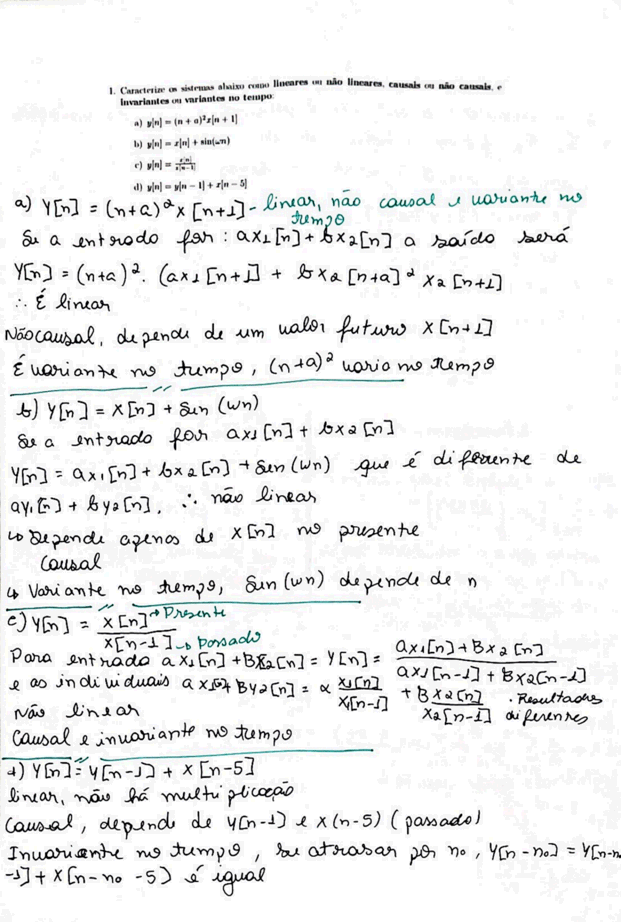 1. Caracterize os sistemas abaixo como lineares ou não lineares, causais ou não causais, e
invariantes ou variantes no tempo:
a) y[n] = (n + a)²x[n + 1]
b) y[n] = x[n] + sin(ωn)
c) y[n] = x[n]/x[n−1]
d) y[n] = y[n − 1] + x[n − 5]
a) Y[n] = (n+a)² x [n+1] - linear, não causal e variante no
tempo
Se a entrada for : ax1[n] + bx2[n] a saída será
Y[n] = (n+a)². (ax1[n+1] + bx2[n+a]² x2[n+1]
∴ É linear
Não causal, depende de um valor futuro X[n+1]
É variante no tempo, (n+a)² varia no tempo
b) Y[n] = X[n] + Sen (wn)
Se a entrada for ax1[n] + bx2[n]
Y[n] = ax1[n] + bx2[n] + Sen(wn) que é diferente de
ay1[n] + by2[n]. ∴ não linear
↳ Depende apenas de X[n] no presente
Causal
↳ Variante no tempo, Sen(wn) depende de n
c) Y[n] = X[n] → Presente
X[n-1] → Passado
Para entrada a x1[n] + BX2[n] = Y[n] = ax1[n] + Bx2[n]
ax1[n-1] + Bx2[n-1]
e as individuais a + By2[n] = α x1[n] + B x2[n] . Resultados
x1[n-1] x2[n-1] diferentes
Não linear
Causal e invariante no tempo
d) Y[n] = y[n-1] + X[n-5]
linear, não há multiplicação
Causal, depende de y[n-1] e x(n-5) (passado)
Invariante no tempo, se atrasar por no, Y[n-no] = Y[n-no
-1] + X[n-no -5) é igual